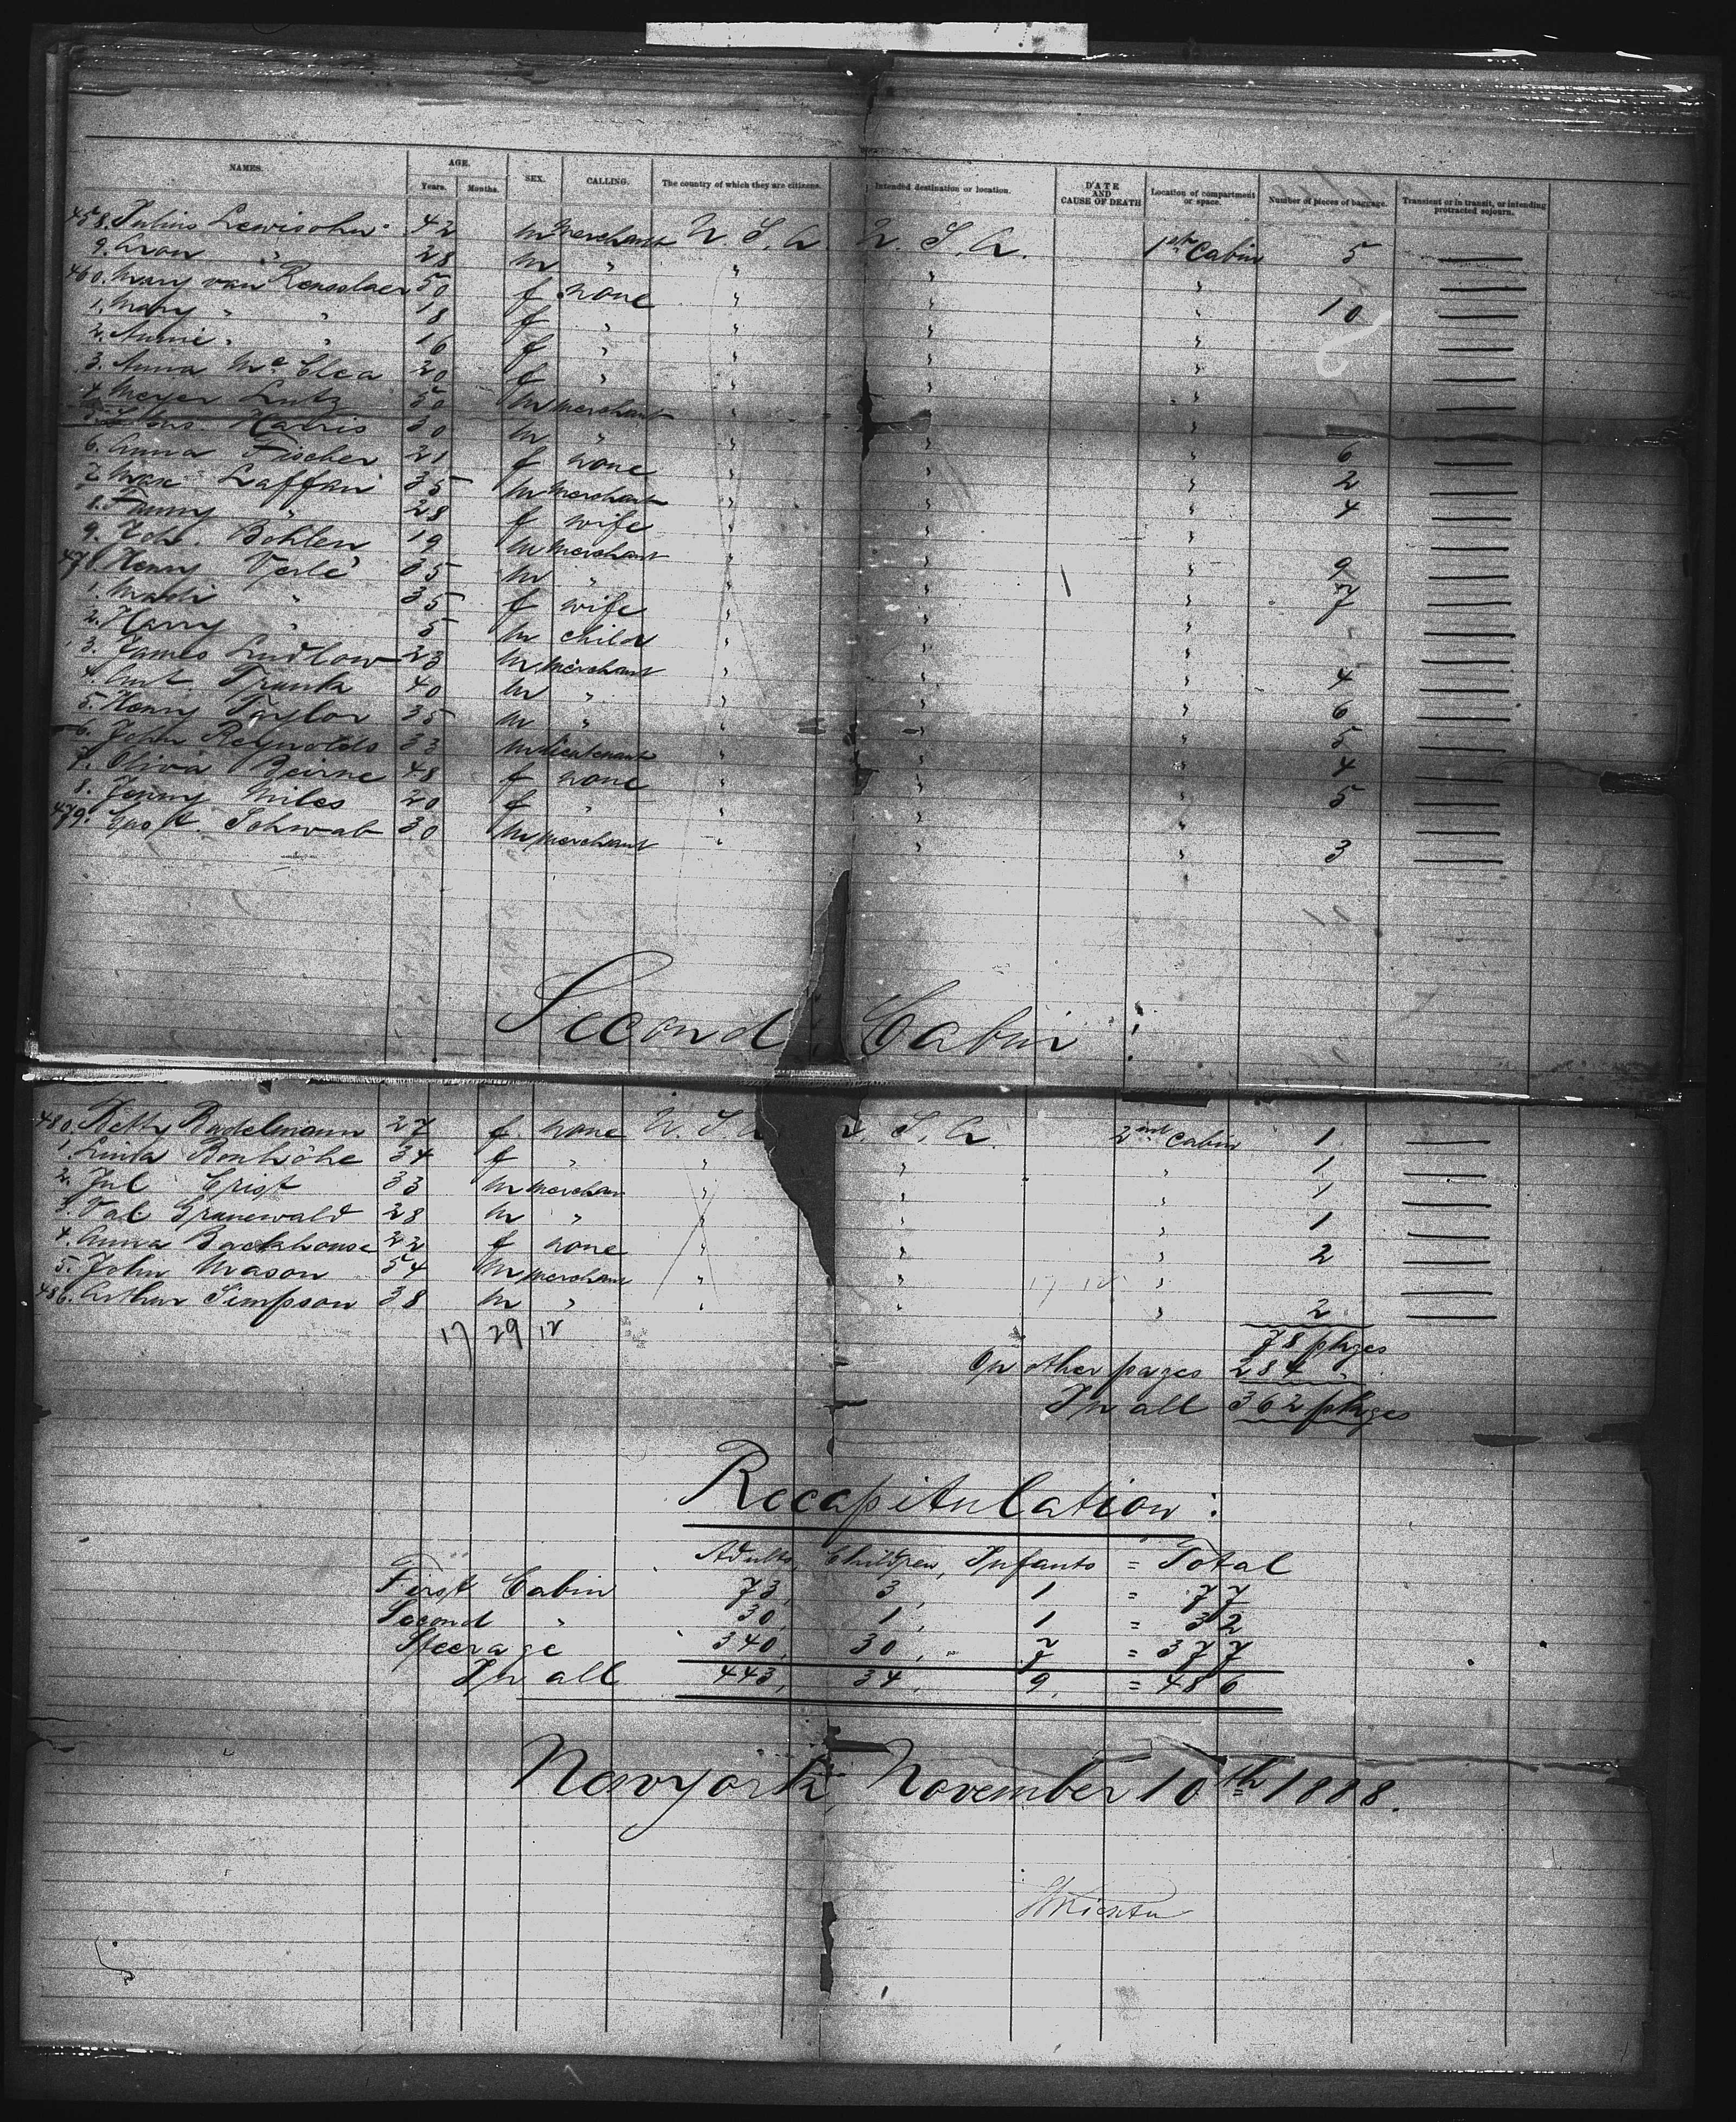 NAMES. AGE. SEX. CALLING. The country of which they are citizens. Intended destination or location. DATE AND CAUSE OF DEATH Location of compartment or space. Number of pieces of baggage. Transient or in transit, or intending protracted sojourn.
Years. Months.
458. Julius Lewisohn 42 m Merchant U. S. A. U. S. A. 1st Cabin 5 —
9. " 28 m " " " " —
460. Mary van Rensslaer 50 f none " " " 10 —
1. Mary " " 18 f " " " " —
2. Annie " " 16 f " " " " —
3. Anna Mc Elea 20 f " " " " —
4. Meyer Lutz 50 m merchant " " " —
5. Harris 30 m " " " " 6 —
6. Anna Fischer 21 f none " " " 2 —
7. Laffan 35 m Merchant " " " 4 —
8. Fanny " 28 f wife " " " —
9. Joh. Bohlen 19 m Merchant " " " 9 —
470. Henry 35 m " " " " 7 —
1. " 35 f wife " " " —
2. Harry " 5 m child " " " —
3. James Ludlow 23 m merchant " " " 4 —
4. 40 m " " " " 6 —
5. Henry Taylor 35 m " " " " 5 —
6. John Reynolds 33 m lieutenant " " " 4 —
7. Oliva Beirne 48 f none " " " 5 —
8. Jenny Miles 20 f " " " "
479. Gust. Schwab 30 m merchant " " " 3 —
Second Cabin :
480. Beth. Badelmann 27 f. none U. S. A. S. A. 2nd Cabin 1 —
1. Linka Bonhöhe 34 f " " " " 1 —
2. Jul. 33 m Merchan " " " 1 —
3. Val. Grunewald 28 m " " " " 1 —
4. Anna Backhouse 22 f none " " " 2 —
5. John Mason 54 m merchan " " " —
486. Arthur Simpson 38 m " " " " 2 —
17 29 12
78 pkges
On other pages 284 "
In all 362 pkges
Recapitulation :
Adults, Children, Infants = Total
First Cabin 73, 3, 1 = 77
Second " 30, 1, 1 = 32
Steerage 340, 30, 7 = 377
In all 443, 34, 9, = 486
Newyork November 10th 1888.